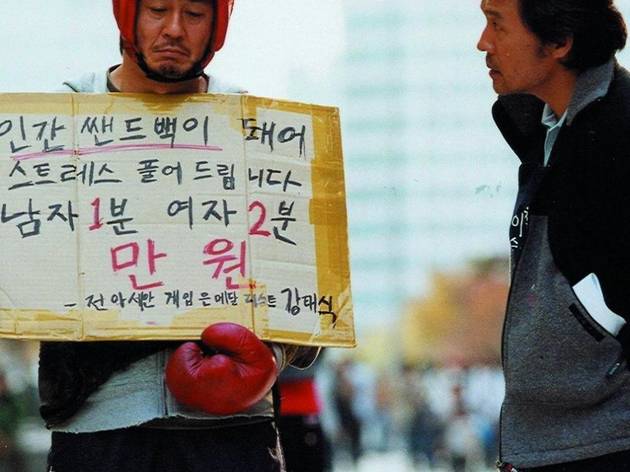 인간 쌘드백이 돼어
스트레스 풀어 드립니다
남자 1분 여자 2분
만 원
- 전 아세안 게임 은메달 리스트 강태식